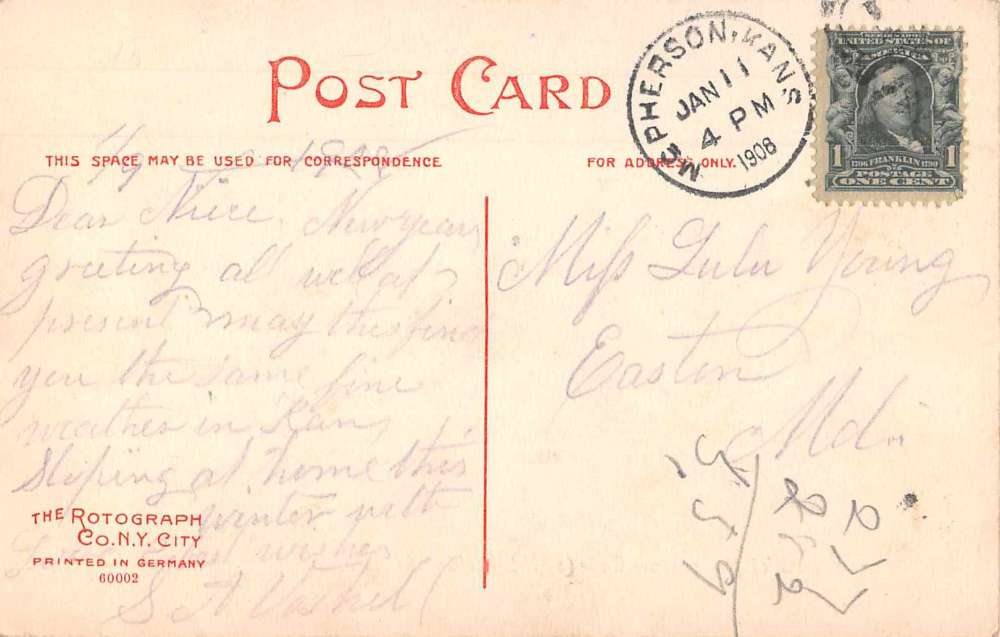 POST CARD
McPHERSON, KANS.
JAN 11
4 PM
1908
SERIES 1902
UNITED STATES OF
AMERICA
1706 FRANKLIN 1790
1 POSTAGE 1
ONE CENT
THIS SPACE MAY BE USED FOR CORRESPONDENCE
FOR ADDRESS ONLY.
1/9 1908
Dear Niece. New years
greeting all well at
present may this find
you the same fine
weather in Kans
Stoping at home this
winter with
wishes
S A
Miss Lulu Young
Easton
Md.
THE ROTOGRAPH
CO. N.Y. CITY
PRINTED IN GERMANY
60002